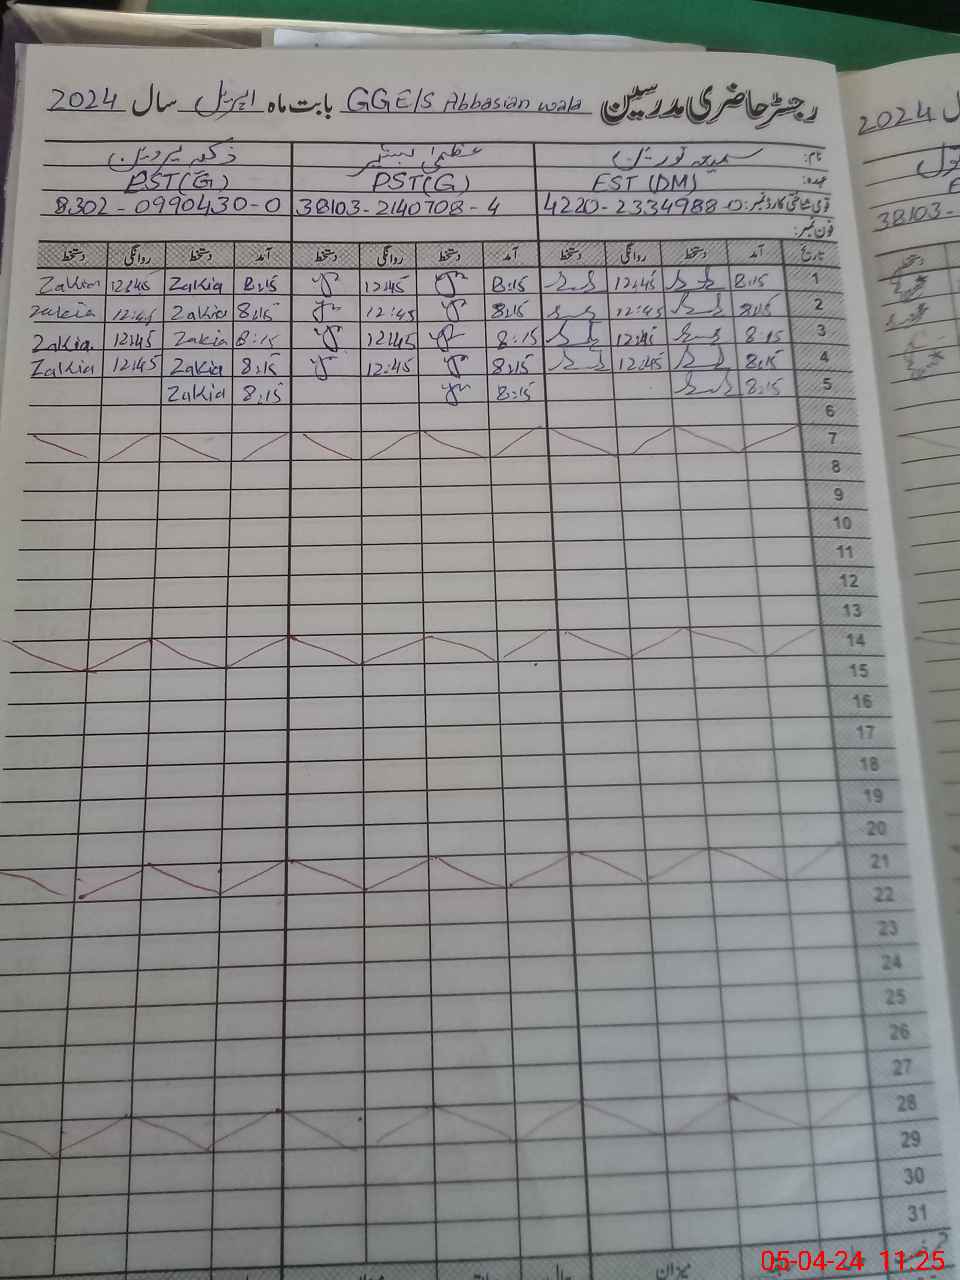 رجسٹر حاضری مدرسین GGE/S Abbasian wala بابت ماہ اپریل سال 2024
نام: سمیعہ نورین عظمیٰ بشیر ذکیہ پروین
عہدہ: EST (DM) PST(G) PST(G)
قومی شناختی کارڈ نمبر: 4220-2334988-0 38103-2140708-4 8302-0990430-0
فون نمبر:
تاریخ آمد دستخط روانگی دستخط آمد دستخط روانگی دستخط آمد دستخط روانگی دستخط
1 8:15 12:45 8:15 12:45 8:15 Zakia 12:45 Zakia
2 8:15 12:45 8:15 12:45 8:15 Zakia 12:45 Zakia
3 8:15 12:45 8:15 12:45 8:15 Zakia 12:45 Zakia
4 8:15 12:45 8:15 12:45 8:15 Zakia 12:45 Zakia
5 8:15 8:15 8:15 Zakia
6
7
8
9
10
11
12
13
14
15
16
17
18
19
20
21
22
23
24
25
26
27
28
29
30
31
میزان
2024
38103-
05-04-24 11:25